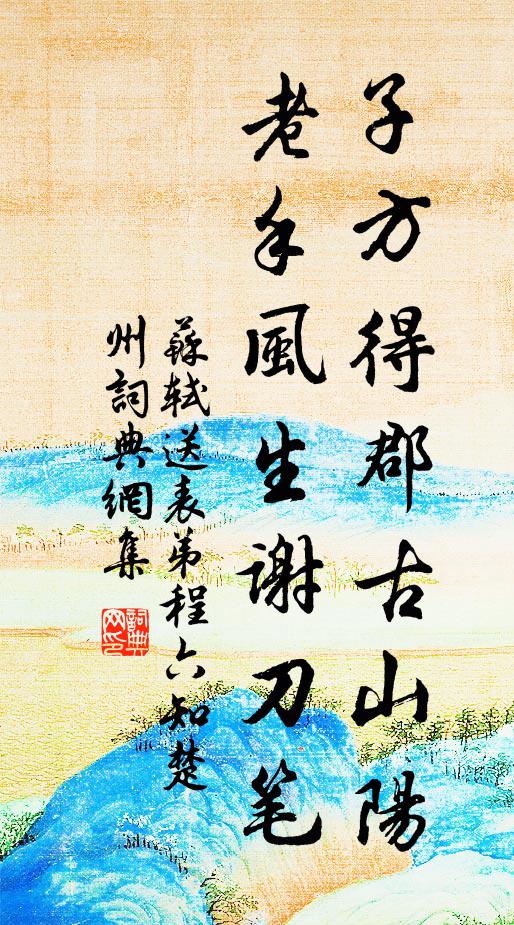 子方得郡古山陽
老手風生謝刀笔
蘇軾送表弟程六知楚
州詞典網集
詞典
网印